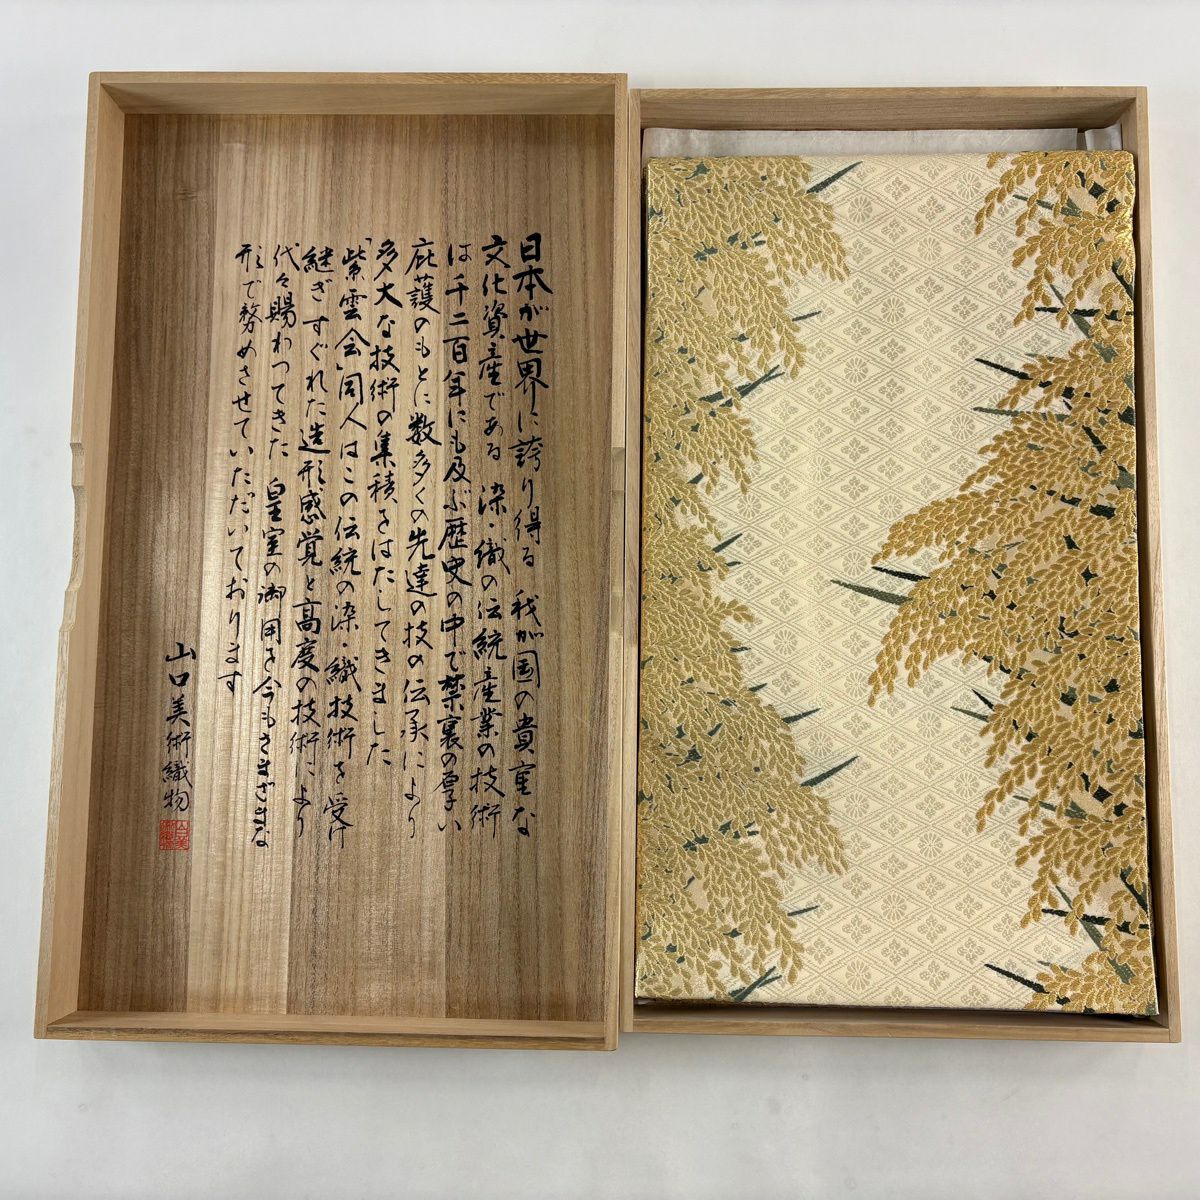 日本が世界に誇り得る 我が国の貴重な
文化資産である 染・織の伝統産業の技術
は千二百年にも及ぶ歴史の中で禁裏の厚い
庇護のもとに数多くの先達の技の伝承により
多大な技術の集積をはたしてきました
「紫雲会」同人はこの伝統の染・織技術を受け
継ぎ すぐれた造形感覚と高度の技術により
代々賜わってきた 皇室の御用を今もさまざまな
形で務めさせていただいております
山口美術織物